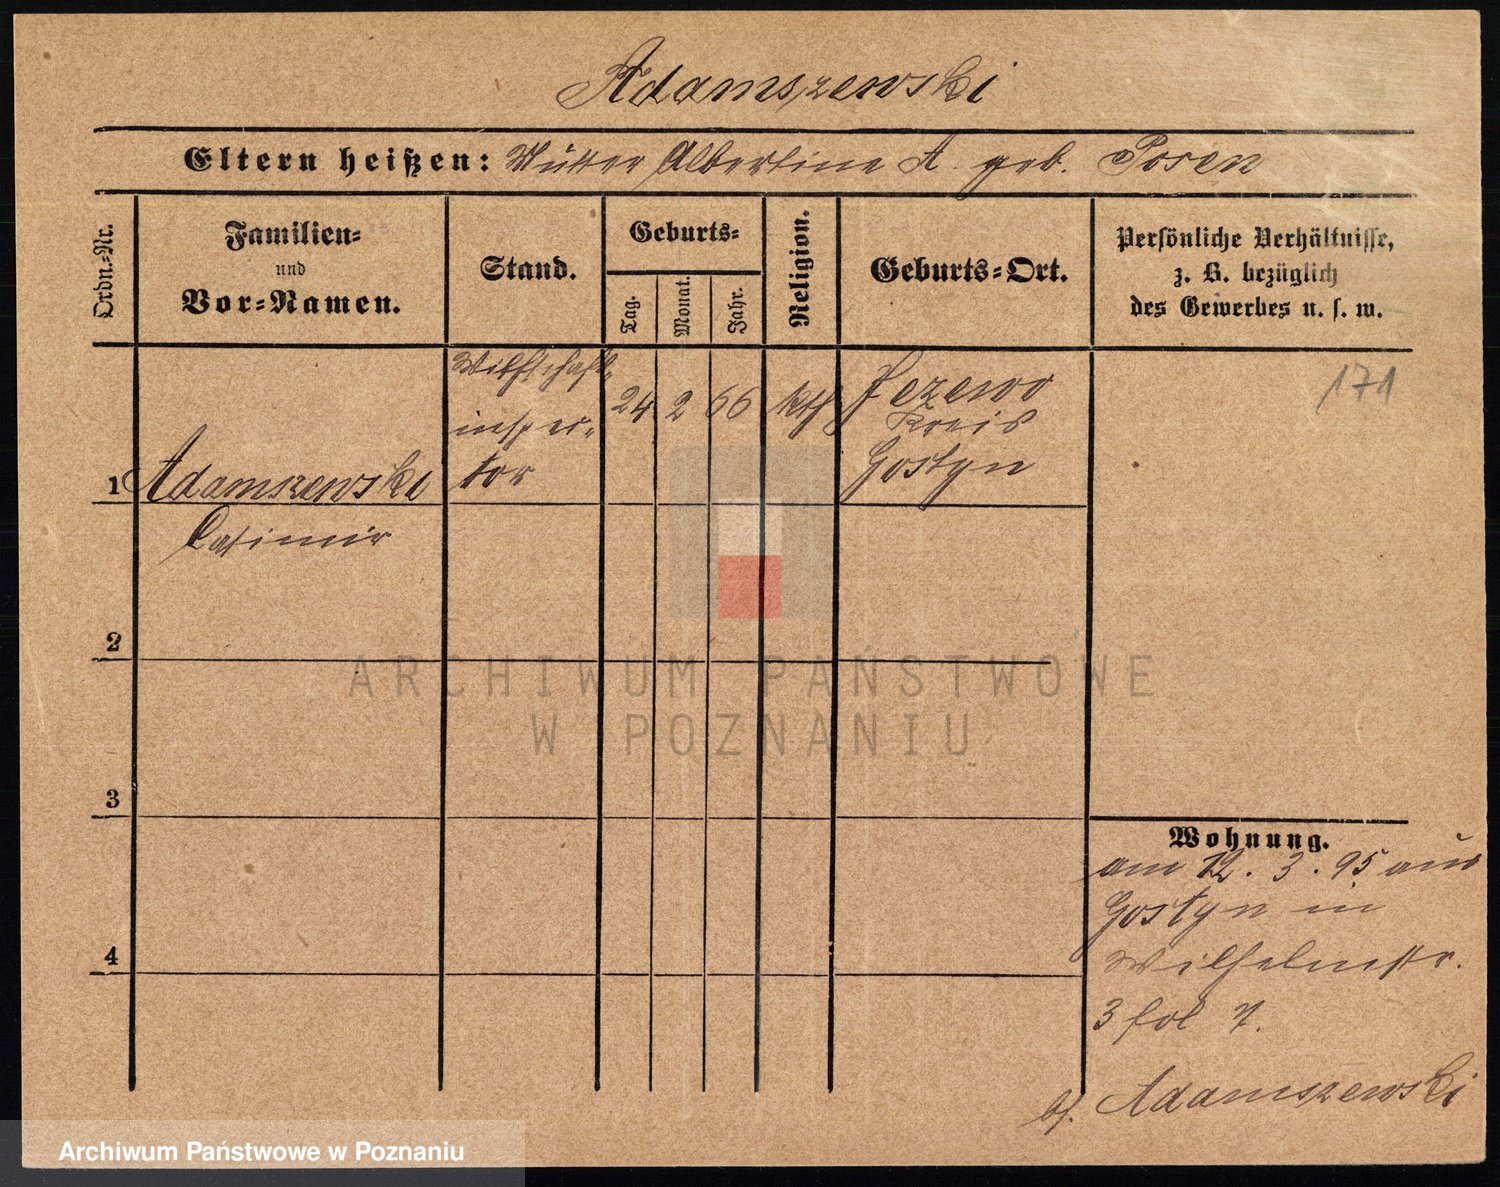 Adamszewski
Eltern heißen: Mutter Albertine A. geb. Posen
Ordn.-Nr.
Familien-
und
Vor-Namen.
Stand.
Geburts-
Tag.
Monat.
Jahr.
Religion.
Geburts-Ort.
Persönliche Verhältnisse,
z. B. bezüglich
des Gewerbes u. s. w.
171
1 Adamszewski
Casimir
Wirthschafts-
inspec-
tor
24 2 66 kth
Jezewo
Kreis
Gostyn
2
3
4
Wohnung.
am 12. 3. 95 aus
Gostyn in
Wilhelmstr.
3 fol 7.
bs. Adamszewski
ARCHIWUM PAŃSTWOWE
W POZNANIU
Archiwum Państwowe w Poznaniu